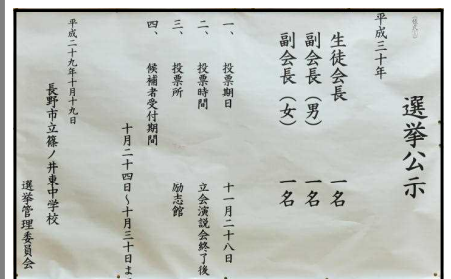 選挙公示
平成三十年
生徒会長 一名
副会長（男） 一名
副会長（女） 一名
一、投票期日 十一月二十八日
二、投票時間 立会演説会終了後
三、投票所 励志館
四、候補者受付期間
十月二十四日～十月三十日ま
平成二十九年十月十九日
長野市立篠ノ井東中学校
選挙管理委員会